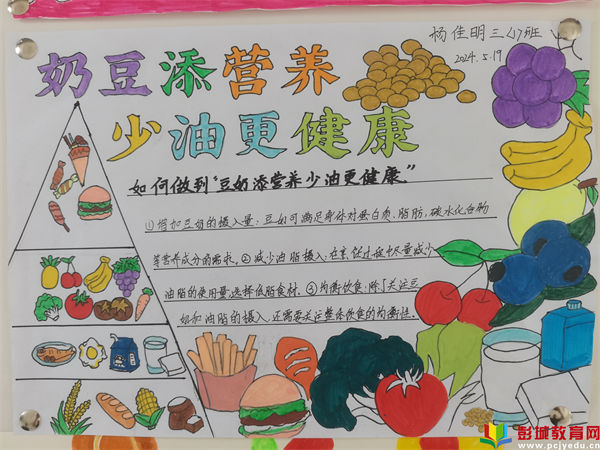 杨佳明三(4)班
2024.5.19
奶豆添营养
少油更健康
如何做到“豆奶添营养少油更健康”
①增加豆奶的摄入量：豆奶可满足身体对蛋白质、脂肪、碳水化合物
等营养成分的需求。②减少油脂摄入：在烹饪过程中尽量减少
油脂的使用量，选择低脂食材。③均衡饮食：除了关注豆
奶和油脂的摄入，还需要关注整体饮食的均衡性。
彭城教育网
www.pcjyedu.cn